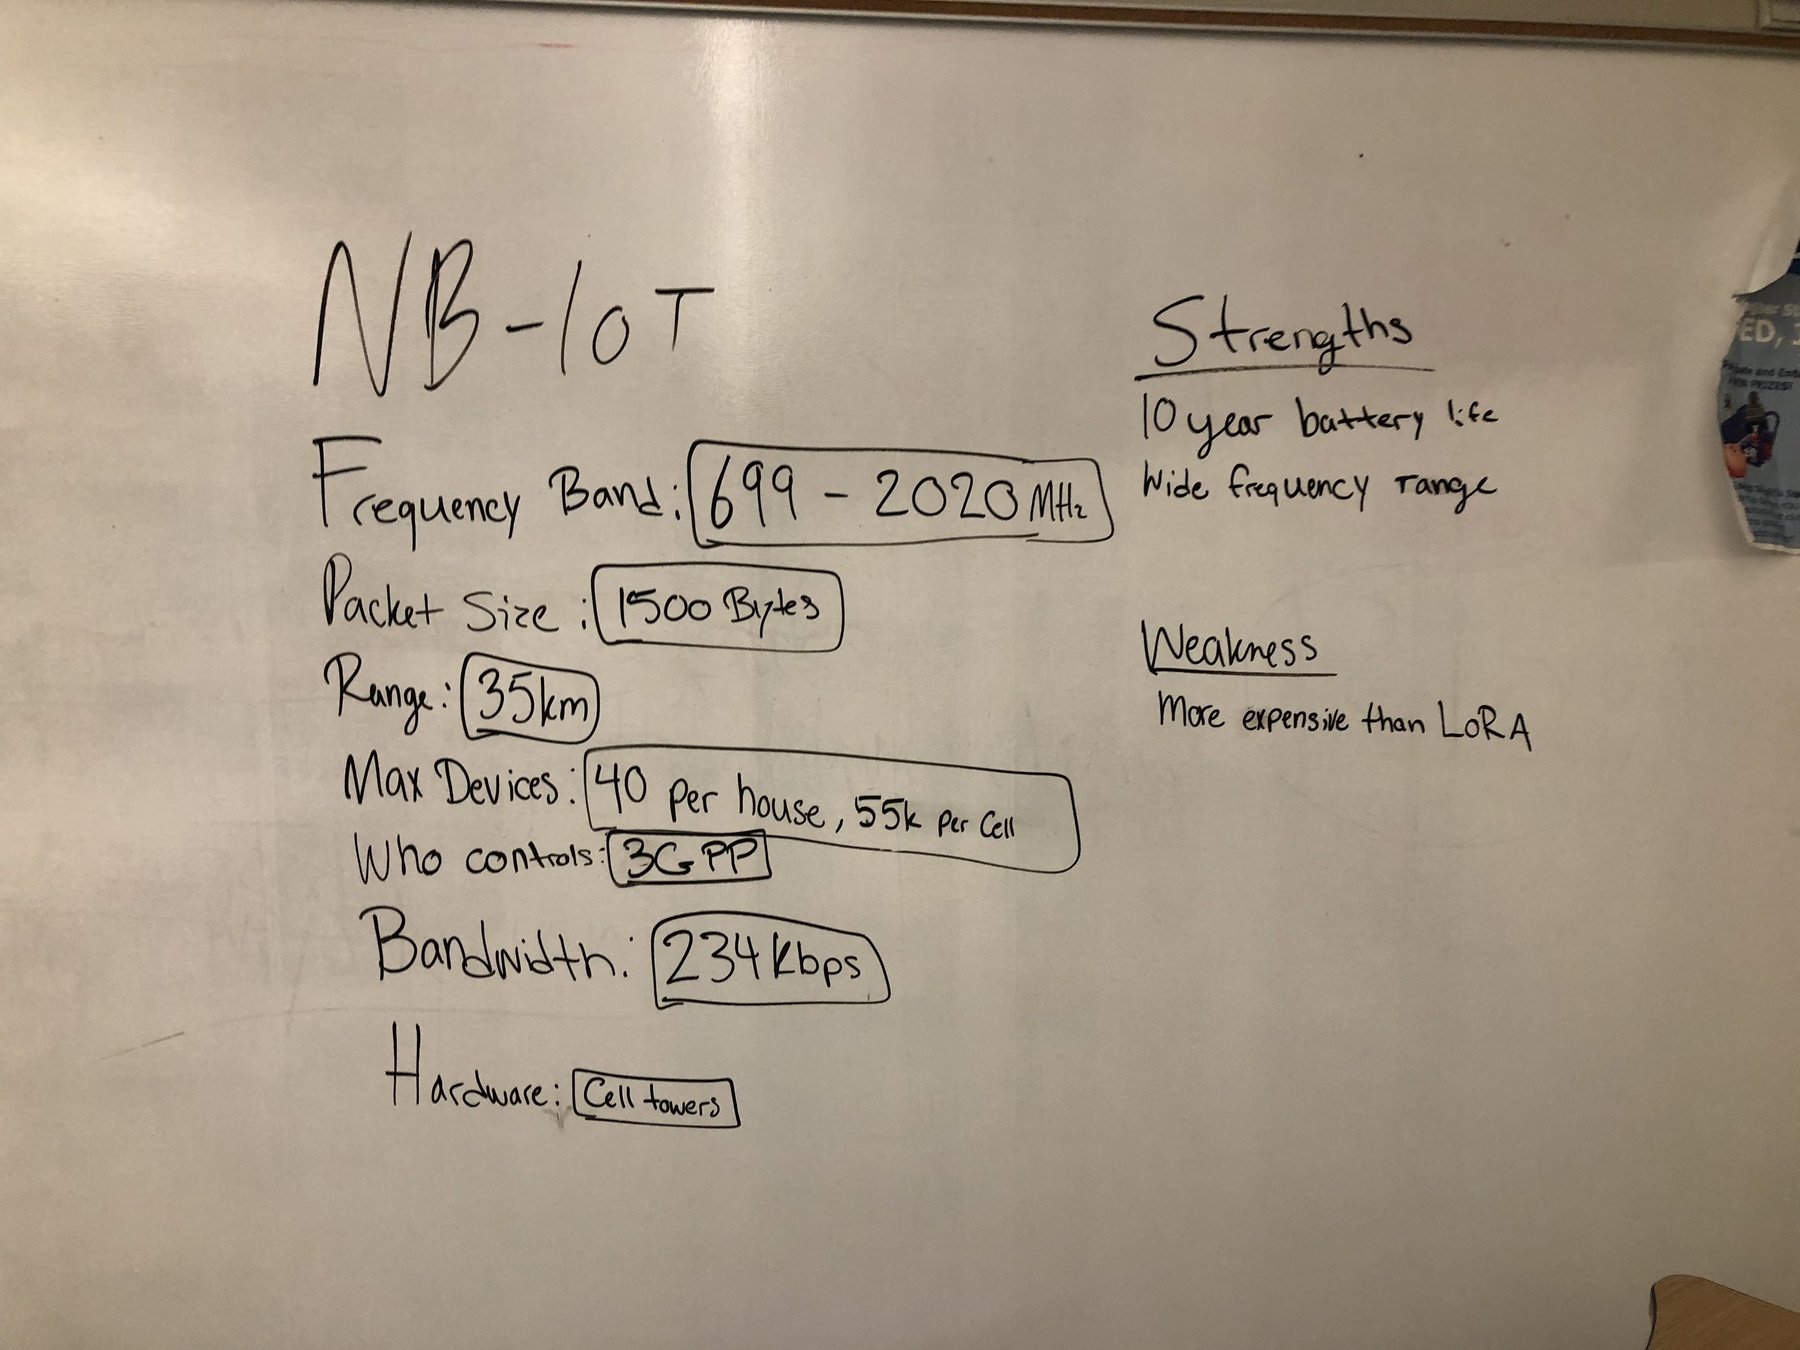 NB-IoT
Frequency Band: 699 - 2020 MHz
Packet Size: 1500 Bytes
Range: 35km
Max Devices: 40 per house, 55k per cell
Who controls: 3GPP
Bandwidth: 234 Kbps
Hardware: Cell towers
Strengths
10 year battery life
Wide frequency range
Weakness
More expensive than LoRA
ED,
PRIZES!